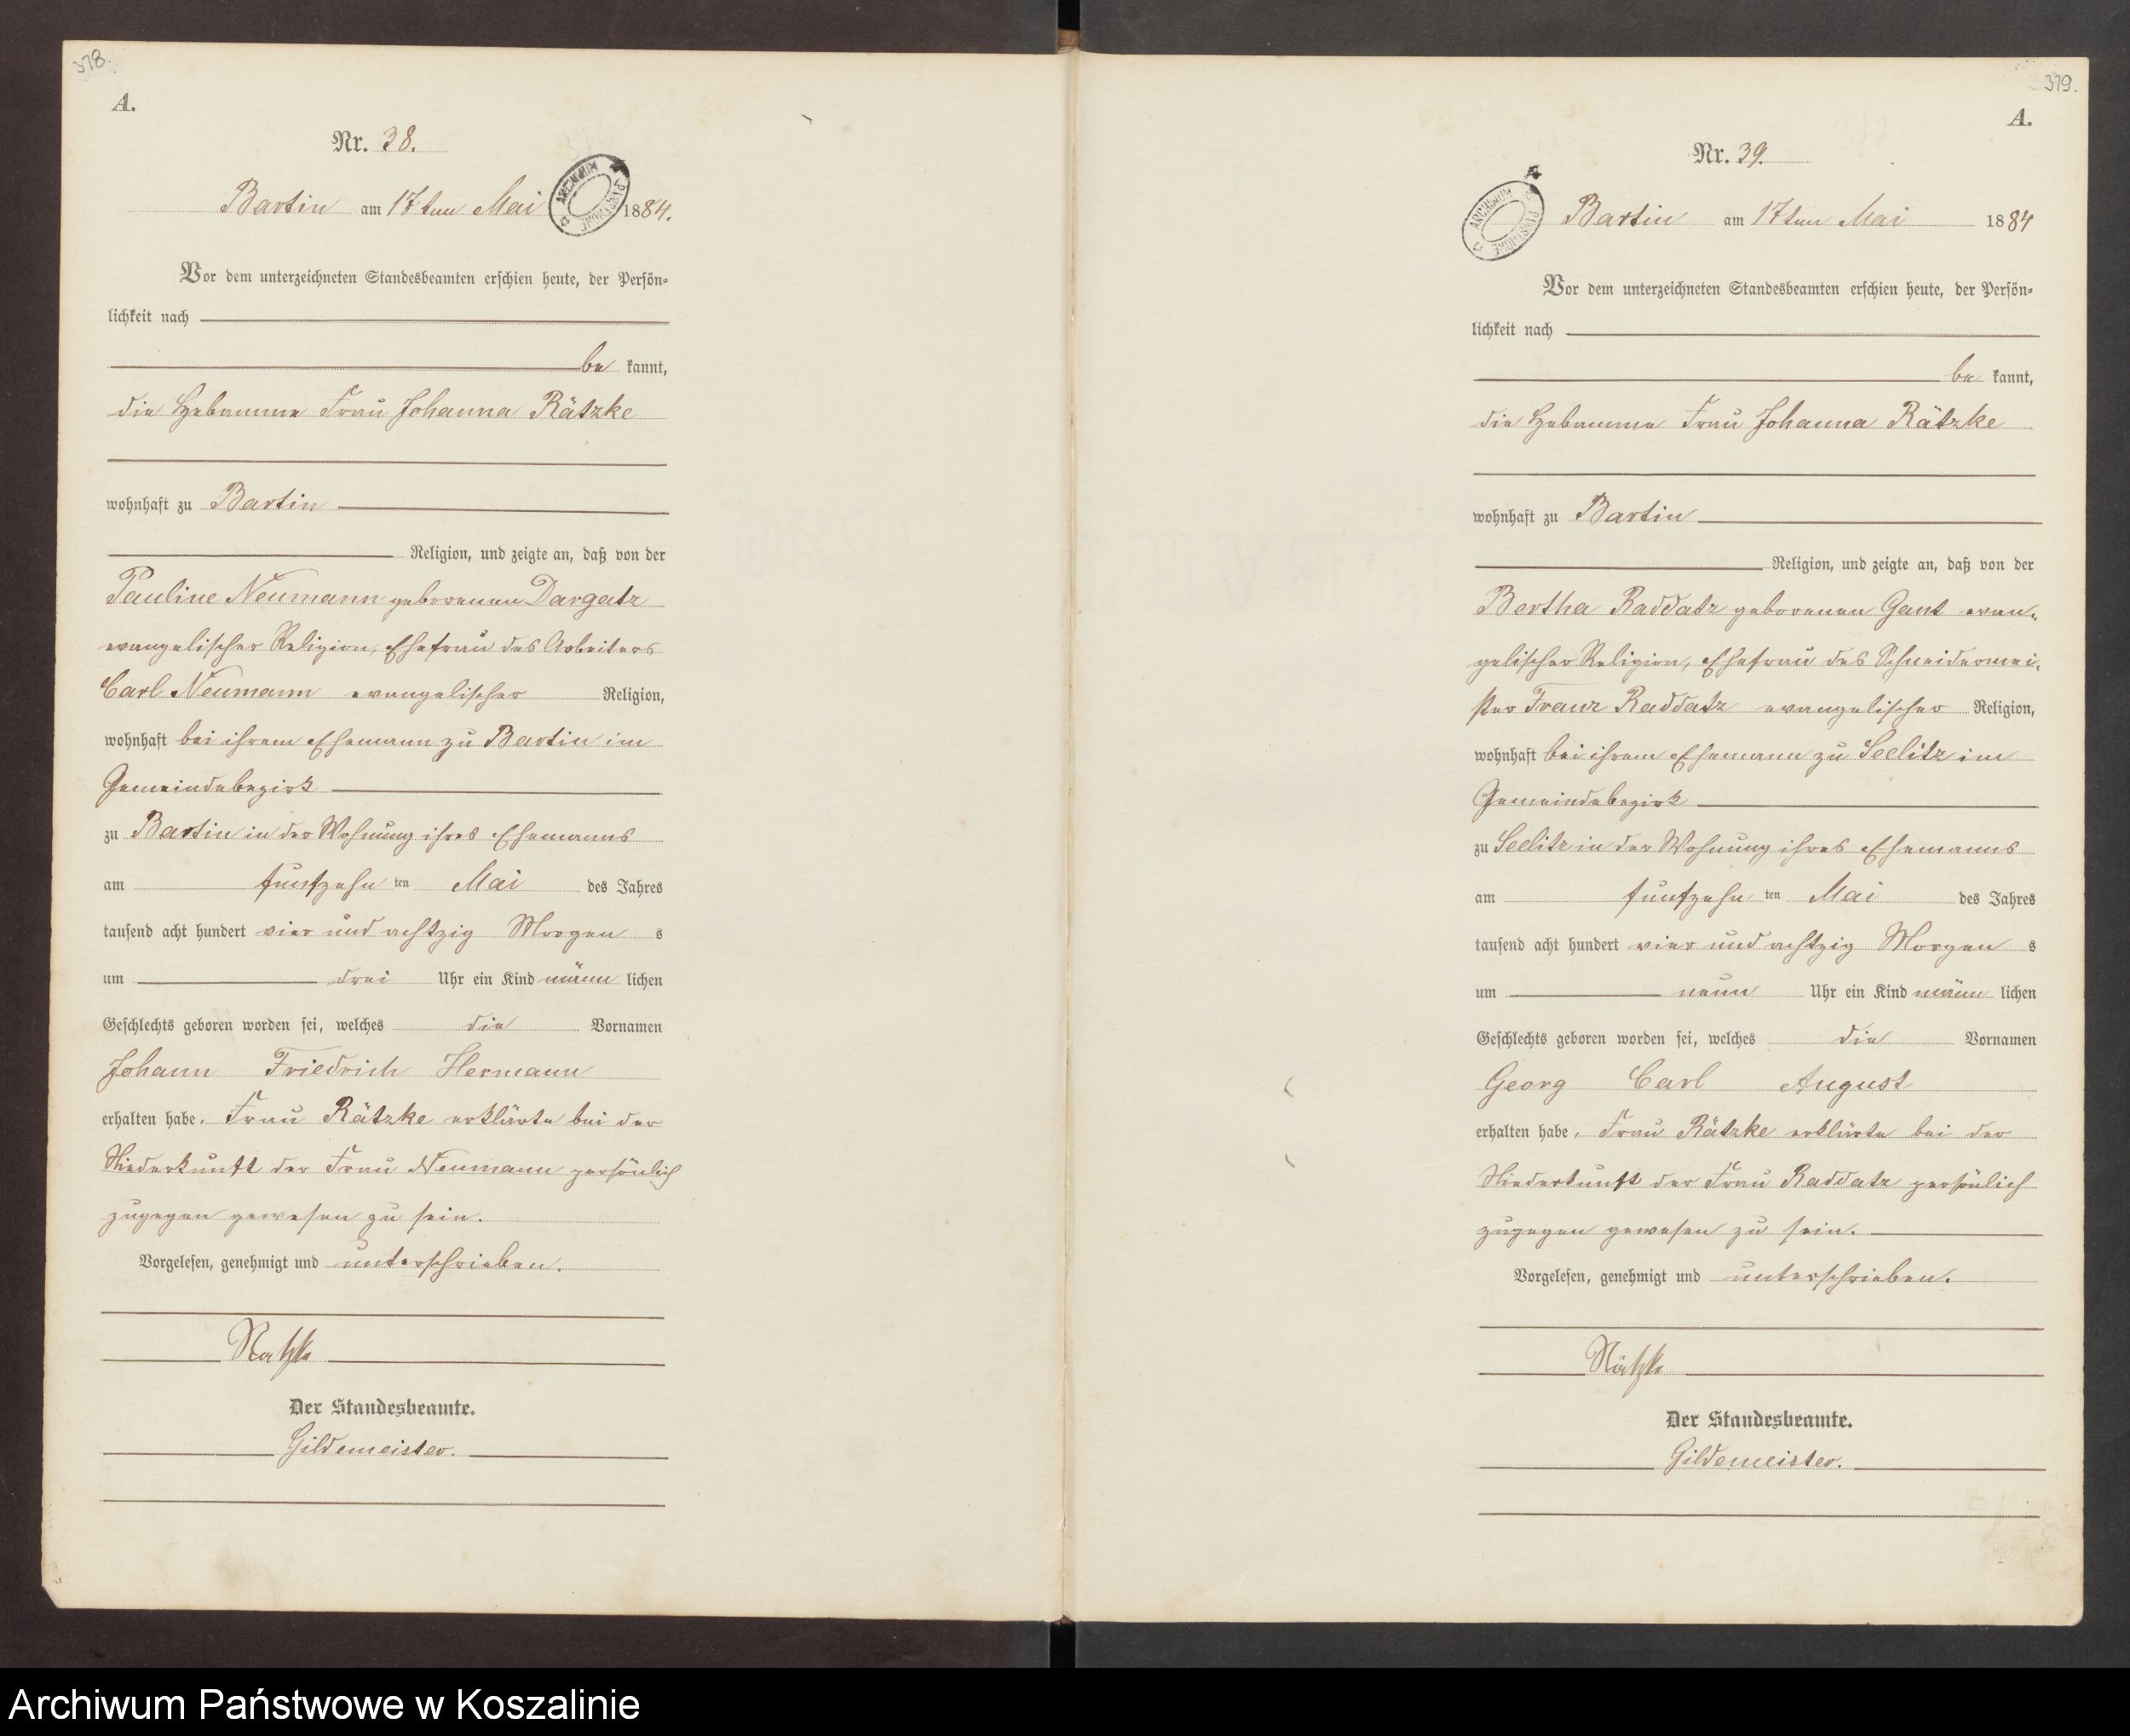 378.
A.
Nr. 38.
Bartin am 17ten Mai 1884.
Vor dem unterzeichneten Standesbeamten erschien heute, der Persön-
lichkeit nach
be kannt,
die Hebamme Frau Johanna Rätzke
wohnhaft zu Bartin
Religion, und zeigte an, daß von der
Pauline Neumann geborenen Dargatz
evangelischer Religion, Ehefrau des Arbeiters
Carl Neumann evangelischer Religion,
wohnhaft bei ihrem Ehemann zu Bartin im
Gemeindebezirk
zu Bartin in der Wohnung ihres Ehemanns
am fünfzehn ten Mai des Jahres
tausend acht hundert vier und achtzig Morgen s
um drei Uhr ein Kind männ lichen
Geschlechts geboren worden sei, welches die Vornamen
Johann Friedrich Hermann
erhalten habe. Frau Rätzke erklärte bei der
Niederkunft der Frau Neumann persönlich
zugegen gewesen zu sein.
Vorgelesen, genehmigt und unterschrieben.
Rätzke
Der Standesbeamte.
Gildemeister.
379.
A.
Nr. 39.
Bartin am 17ten Mai 1884
Vor dem unterzeichneten Standesbeamten erschien heute, der Persön-
lichkeit nach
be kannt,
die Hebamme Frau Johanna Rätzke
wohnhaft zu Bartin
Religion, und zeigte an, daß von der
Bertha Raddatz geborenen Gant evan-
gelischer Religion, Ehefrau des Schneidermei-
ster Franz Raddatz evangelischer Religion,
wohnhaft bei ihrem Ehemann zu Seelitz im
Gemeindebezirk
zu Seelitz in der Wohnung ihres Ehemanns
am fünfzehn ten Mai des Jahres
tausend acht hundert vier und achtzig Morgen s
um neun Uhr ein Kind männ lichen
Geschlechts geboren worden sei, welches die Vornamen
Georg Carl August
erhalten habe. Frau Rätzke erklärte bei der
Niederkunft der Frau Raddatz persönlich
zugegen gewesen zu sein.
Vorgelesen, genehmigt und unterschrieben.
Rätzke
Der Standesbeamte.
Gildemeister.
Archiwum Państwowe w Koszalinie